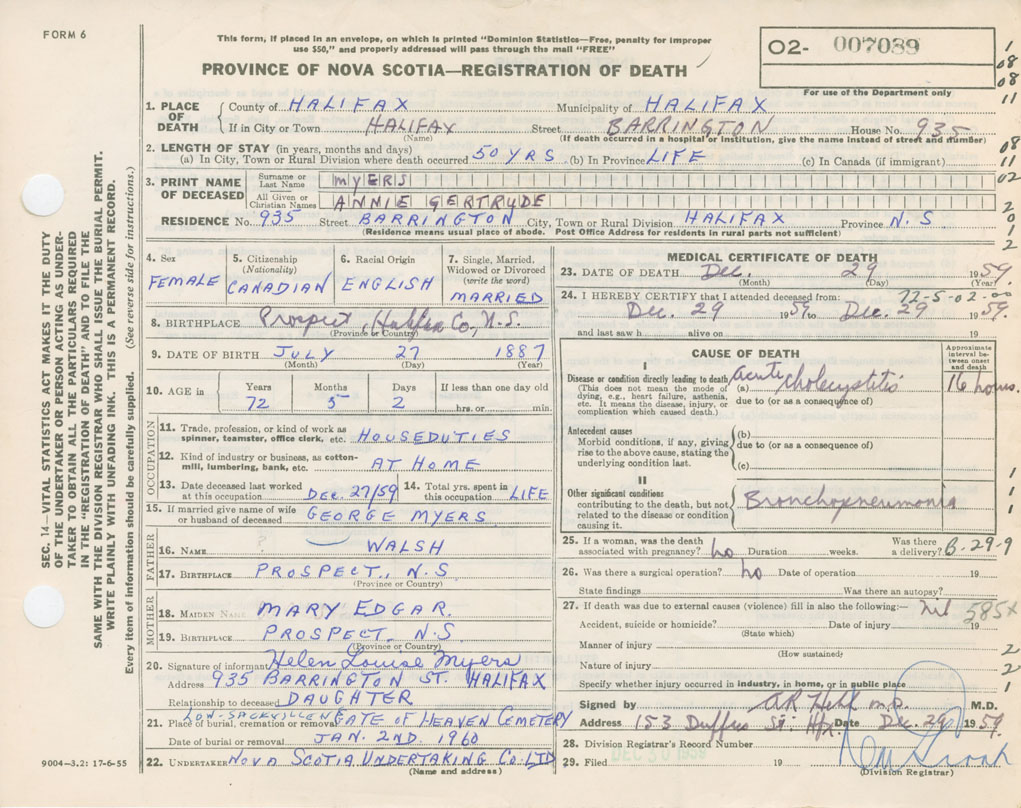 FORM 6
This form, if placed in an envelope, on which is printed "Dominion Statistics—Free, penalty for improper
use $50," and properly addressed will pass through the mail "FREE"
PROVINCE OF NOVA SCOTIA—REGISTRATION OF DEATH
O2- 007039
For use of the Department only
1
08
08
11
1. PLACE OF DEATH
County of HALIFAX Municipality of HALIFAX
If in City or Town HALIFAX Street BARRINGTON House No. 935
(Name) (If death occurred in a hospital or institution, give the name instead of street and number)
2. LENGTH OF STAY (in years, months and days)
(a) In City, Town or Rural Division where death occurred 50 YRS (b) In Province LIFE (c) In Canada (if immigrant)
08
11
02
3. PRINT NAME OF DECEASED
Surname or Last Name MYERS
All Given or Christian Names ANNIE GERTRUDE
RESIDENCE No. 935 Street BARRINGTON City, Town or Rural Division HALIFAX Province N. S
(Residence means usual place of abode. Post Office Address for residents in rural parts not sufficient)
2
0
1
2
4. Sex
FEMALE
5. Citizenship
(Nationality)
CANADIAN
6. Racial Origin
ENGLISH
7. Single, Married,
Widowed or Divorced
(write the word)
MARRIED
8. BIRTHPLACE Prospect, Halifax Co., N.S.
(Province or Country)
9. DATE OF BIRTH JULY 27 1887
(Month) (Day) (Year)
10. AGE in
Years Months Days If less than one day old
72 5 2 hrs. or min.
OCCUPATION
11. Trade, profession, or kind of work as
spinner, teamster, office clerk, etc. HOUSEDUTIES
12. Kind of industry or business, as cotton-
mill, lumbering, bank, etc. AT HOME
13. Date deceased last worked
at this occupation DEC. 27/59
14. Total yrs. spent in
this occupation LIFE
15. If married give name of wife
or husband of deceased GEORGE MYERS
FATHER
?
16. NAME WALSH
17. BIRTHPLACE PROSPECT, N.S
(Province or Country)
MOTHER
18. MAIDEN NAME MARY EDGAR.
19. BIRTHPLACE PROSPECT, N.S
(Province or Country)
20. Signature of informant Helen Louise Myers
Address 935 BARRINGTON ST. HALIFAX
Relationship to deceased DAUGHTER
LOW-SACKVILLE
21. Place of burial, cremation or removal GATE OF HEAVEN CEMETERY
Date of burial or removal JAN. 2ND. 1960
22. UNDERTAKER NOVA SCOTIA UNDERTAKING CO. LTD
(Name and address)
9004-3.2: 17-6-55
MEDICAL CERTIFICATE OF DEATH
23. DATE OF DEATH Dec. 29 1959.
(Month) (Day) (Year)
24. I HEREBY CERTIFY that I attended deceased from: 72-5-02-00
Dec. 29 1959 to Dec. 29 1959.
and last saw h alive on 19
CAUSE OF DEATH
Approximate
interval be-
tween onset
and death
I
Disease or condition directly leading to death
(This does not mean the mode of
dying, e.g., heart failure, asthenia,
etc. It means the disease, injury, or
complication which caused death.)
(a) Acute cholecystitis 16 hours.
due to (or as a consequence of)
Antecedent causes
Morbid conditions, if any, giving
rise to the above cause, stating the
underlying condition last.
(b)
due to (or as a consequence of)
(c)
II
Other significant conditions
contributing to the death, but not
related to the disease or condition
causing it.
Bronchopneumonia
1
1
1
25. If a woman, was the death
associated with pregnancy? no Duration weeks. Was there
a delivery? B-29-9
26. Was there a surgical operation? no Date of operation 19
State findings Was there an autopsy?
27. If death was due to external causes (violence) fill in also the following:— nil 585x
Accident, suicide or homicide? Date of injury 19
(State which)
Manner of injury
(How sustained)
2
Nature of injury
2
Specify whether injury occurred in industry, in home, or in public place
1
Signed by M.D. M.D.
Address 153 Duffus St. Hfx. Date Dec. 29 1959.
28. Division Registrar's Record Number
DEC 30 1959
29. Filed 19
(Division Registrar)
SEC. 14—VITAL STATISTICS ACT MAKES IT THE DUTY
OF THE UNDERTAKER OR PERSON ACTING AS UNDER-
TAKER TO OBTAIN ALL THE PARTICULARS REQUIRED
IN THE "REGISTRATION OF DEATH" AND TO FILE THE
SAME WITH THE DIVISION REGISTRAR WHO SHALL ISSUE THE BURIAL PERMIT.
WRITE PLAINLY WITH UNFADING INK. THIS IS A PERMANENT RECORD.
Every item of information should be carefully supplied. (See reverse side for instructions.)